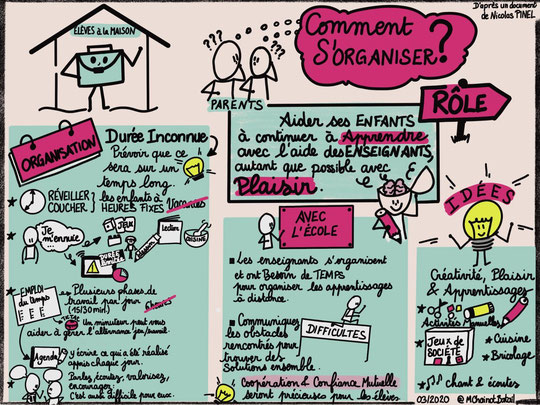 D'après un document
de Nicolas PINEL
ÉLÈVES à la MAISON
Comment
S'ORGANISER?
???
???
PARENTS
RÔLE
Aider ses ENFANTS
à continuer à Apprendre
avec l'aide des ENSEIGNANTS,
autant que possible avec
Plaisir.
ORGANISATION
Durée Inconnue
Prévoir que ce
sera sur un
temps long.
RÉVEILLER
COUCHER
les enfants à
HEURES FIXES
Vacances
Je
m'ennuie
JEUX
Lecture
CUISINE
EMPLOI
du Temps
Plusieurs phases de
travail par jour
(15/30 min)
TIC TAC
Un minuteur peut vous
aider à gérer l'alternance jeu/travail.
Agenda
J'écrire ce qui a été réalisé
appris chaque jour.
Parlez, écoutez, valorisez,
encouragez!
C'est aussi difficile pour eux.
AVEC
L'ÉCOLE
Les enseignants s'organisent
et ont BESOIN de TEMPS
pour organiser les apprentissages
à distance.
Communiquez
les obstacles
rencontrés pour
trouver des
solutions ensemble.
DIFFICULTÉS
Coopération & Confiance Mutuelle
seront précieuse pour les élèves.
IDÉES
Créativité, Plaisir
& Apprentissages
Activités Manuelles
JEUX de
SOCIÉTÉ
Cuisine
Bricolage
chant & écoutes
03/2020